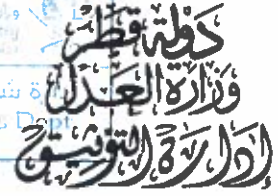 دَوْلَة قَطَر
وَزَارَة العَدْل
إِدَارَة التَّوثِيق
Dept